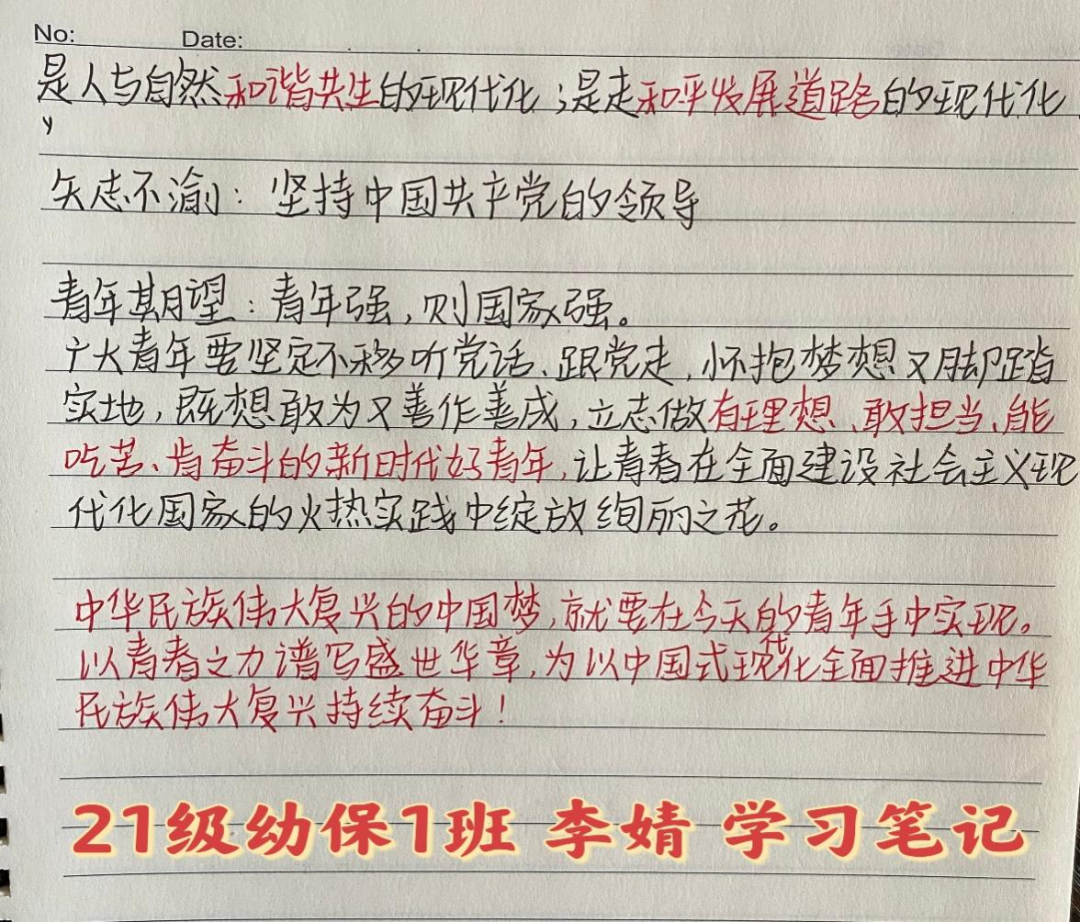 No: Date:
是人与自然和谐共生的现代化；是走和平发展道路的现代化
矢志不渝：坚持中国共产党的领导
青年期望：青年强，则国家强。
广大青年要坚定不移听党话、跟党走，怀抱梦想又脚踏
实地，既想敢为又善作善成，立志做有理想、敢担当、能
吃苦、肯奋斗的新时代好青年，让青春在全面建设社会主义现
代化国家的火热实践中绽放绚丽之花。
中华民族伟大复兴的中国梦，就要在今天的青年手中实现。
以青春之力谱写盛世华章，为以中国式现代化全面推进中华
民族伟大复兴持续奋斗！
21级幼保1班 李婧 学习笔记